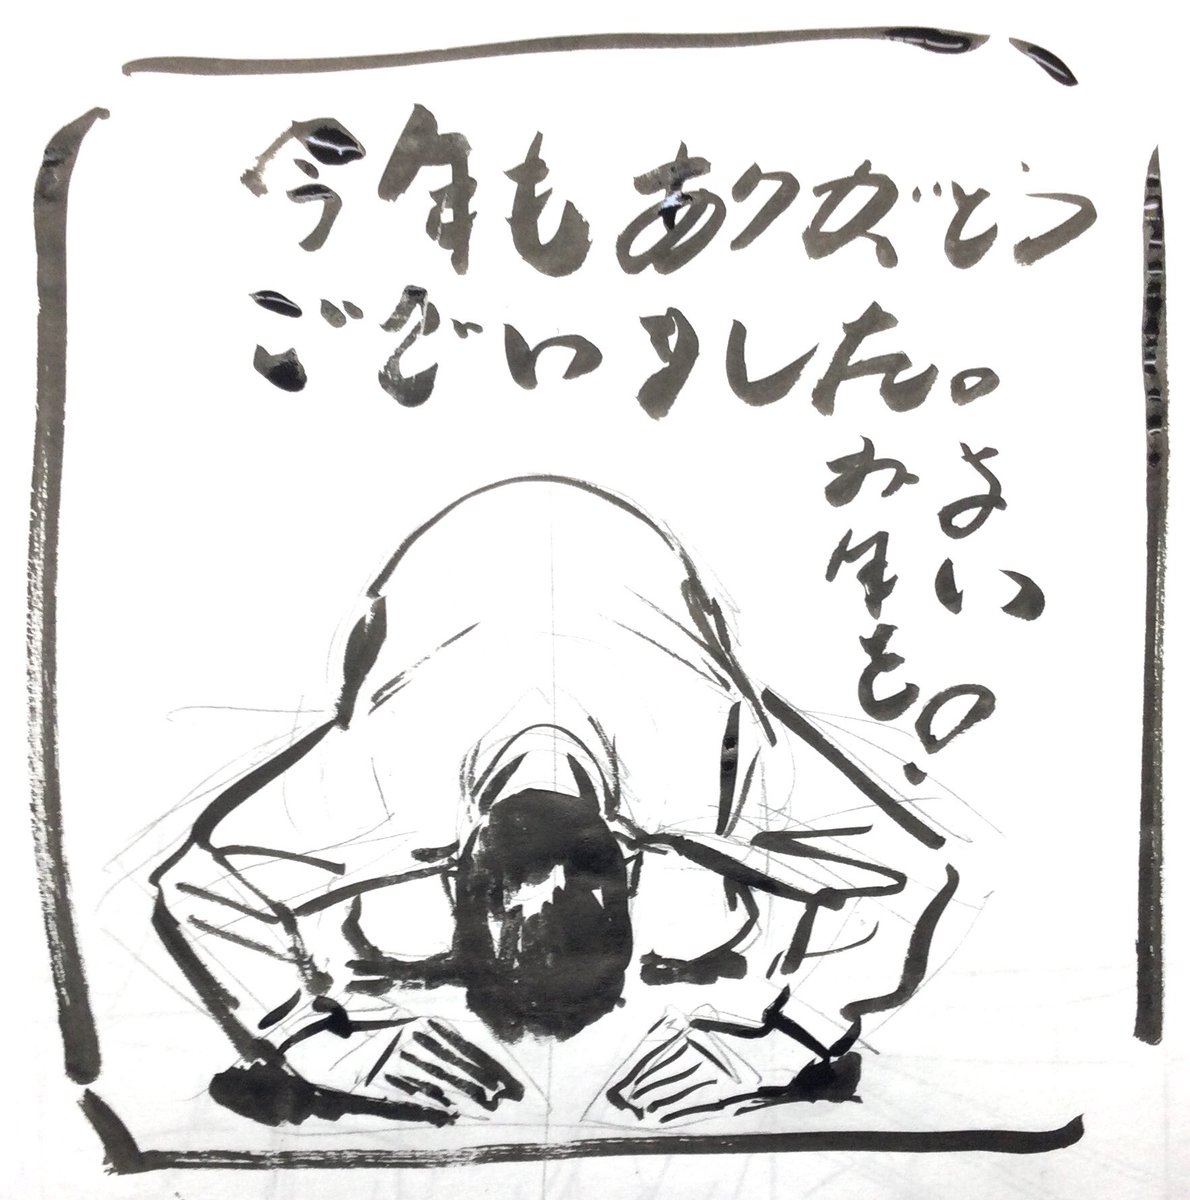 今年もありがとう
ございました。
よい
お年を。